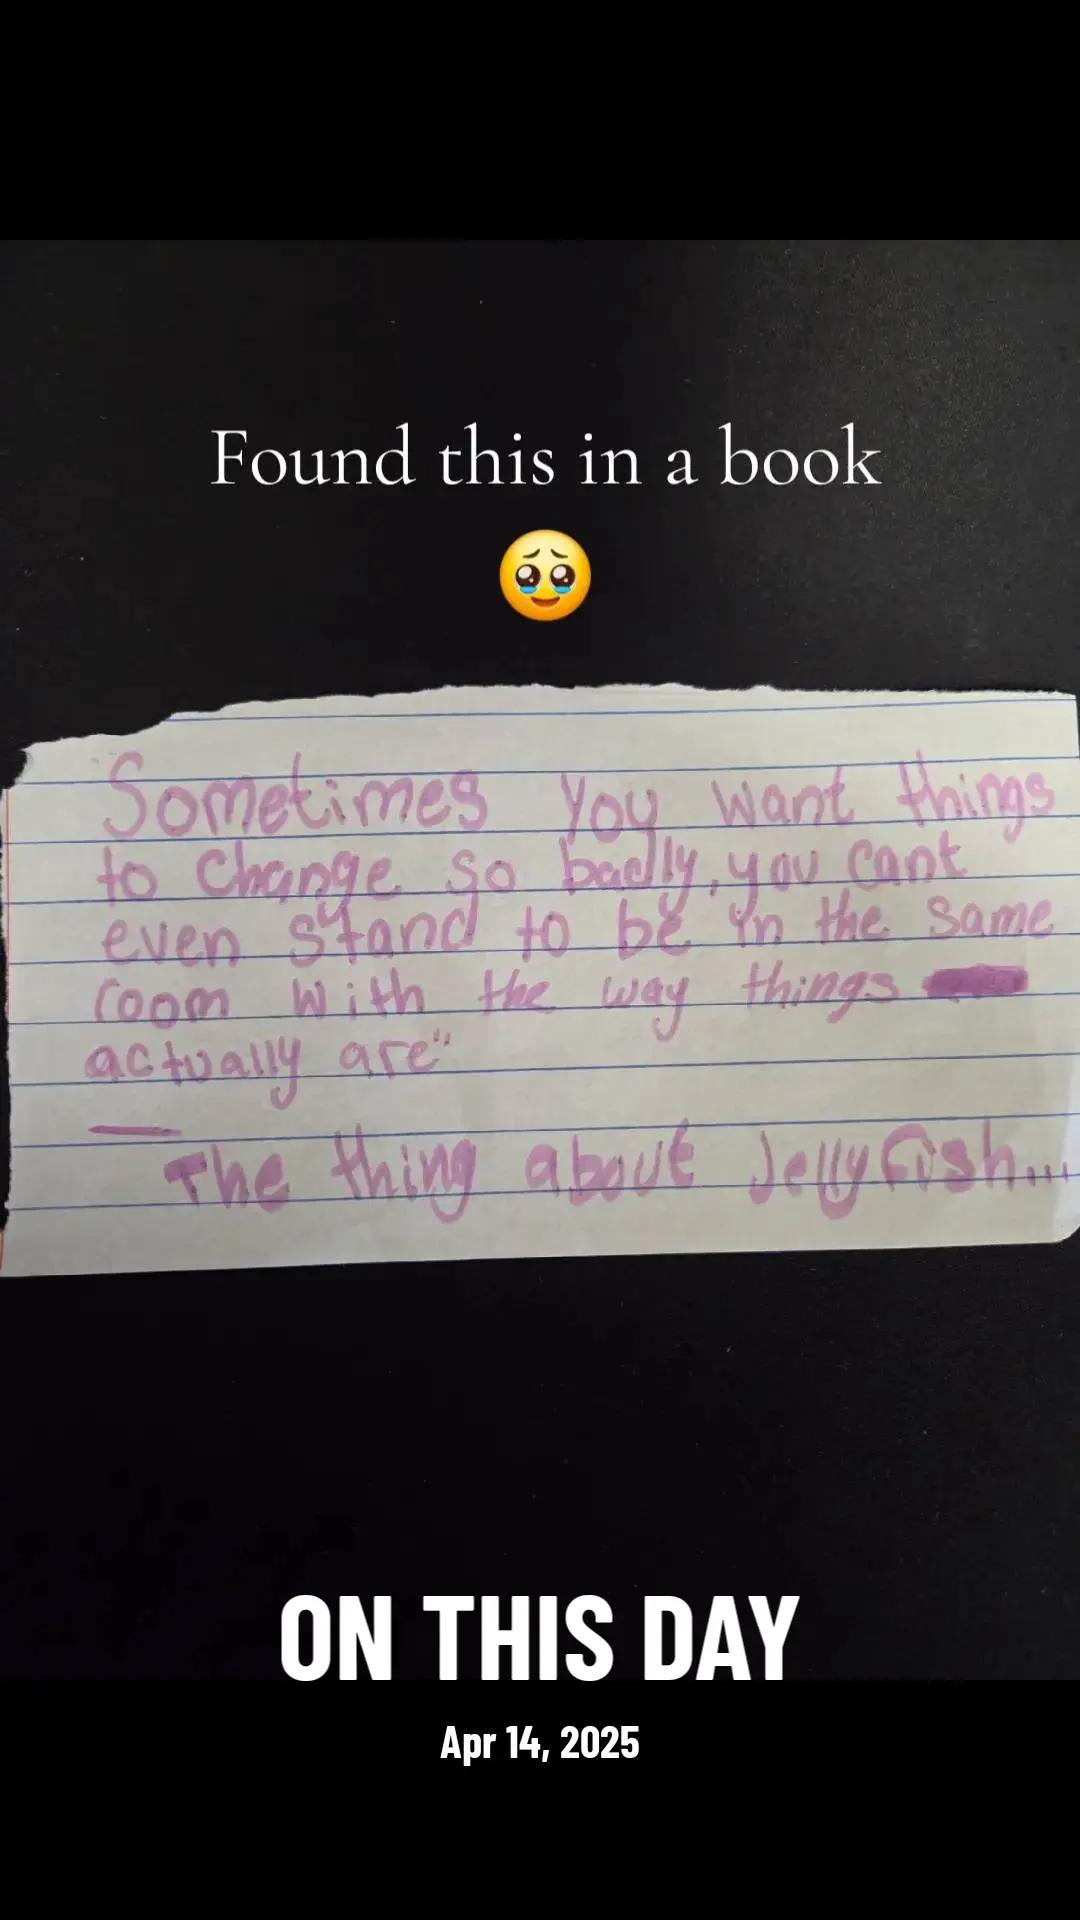 Found this in a book
🥹
Sometimes you want things
to change so badly, you cant
even stand to be in the same
room with the way things
actually are"
— The thing about Jellyfish...
ON THIS DAY
Apr 14, 2025